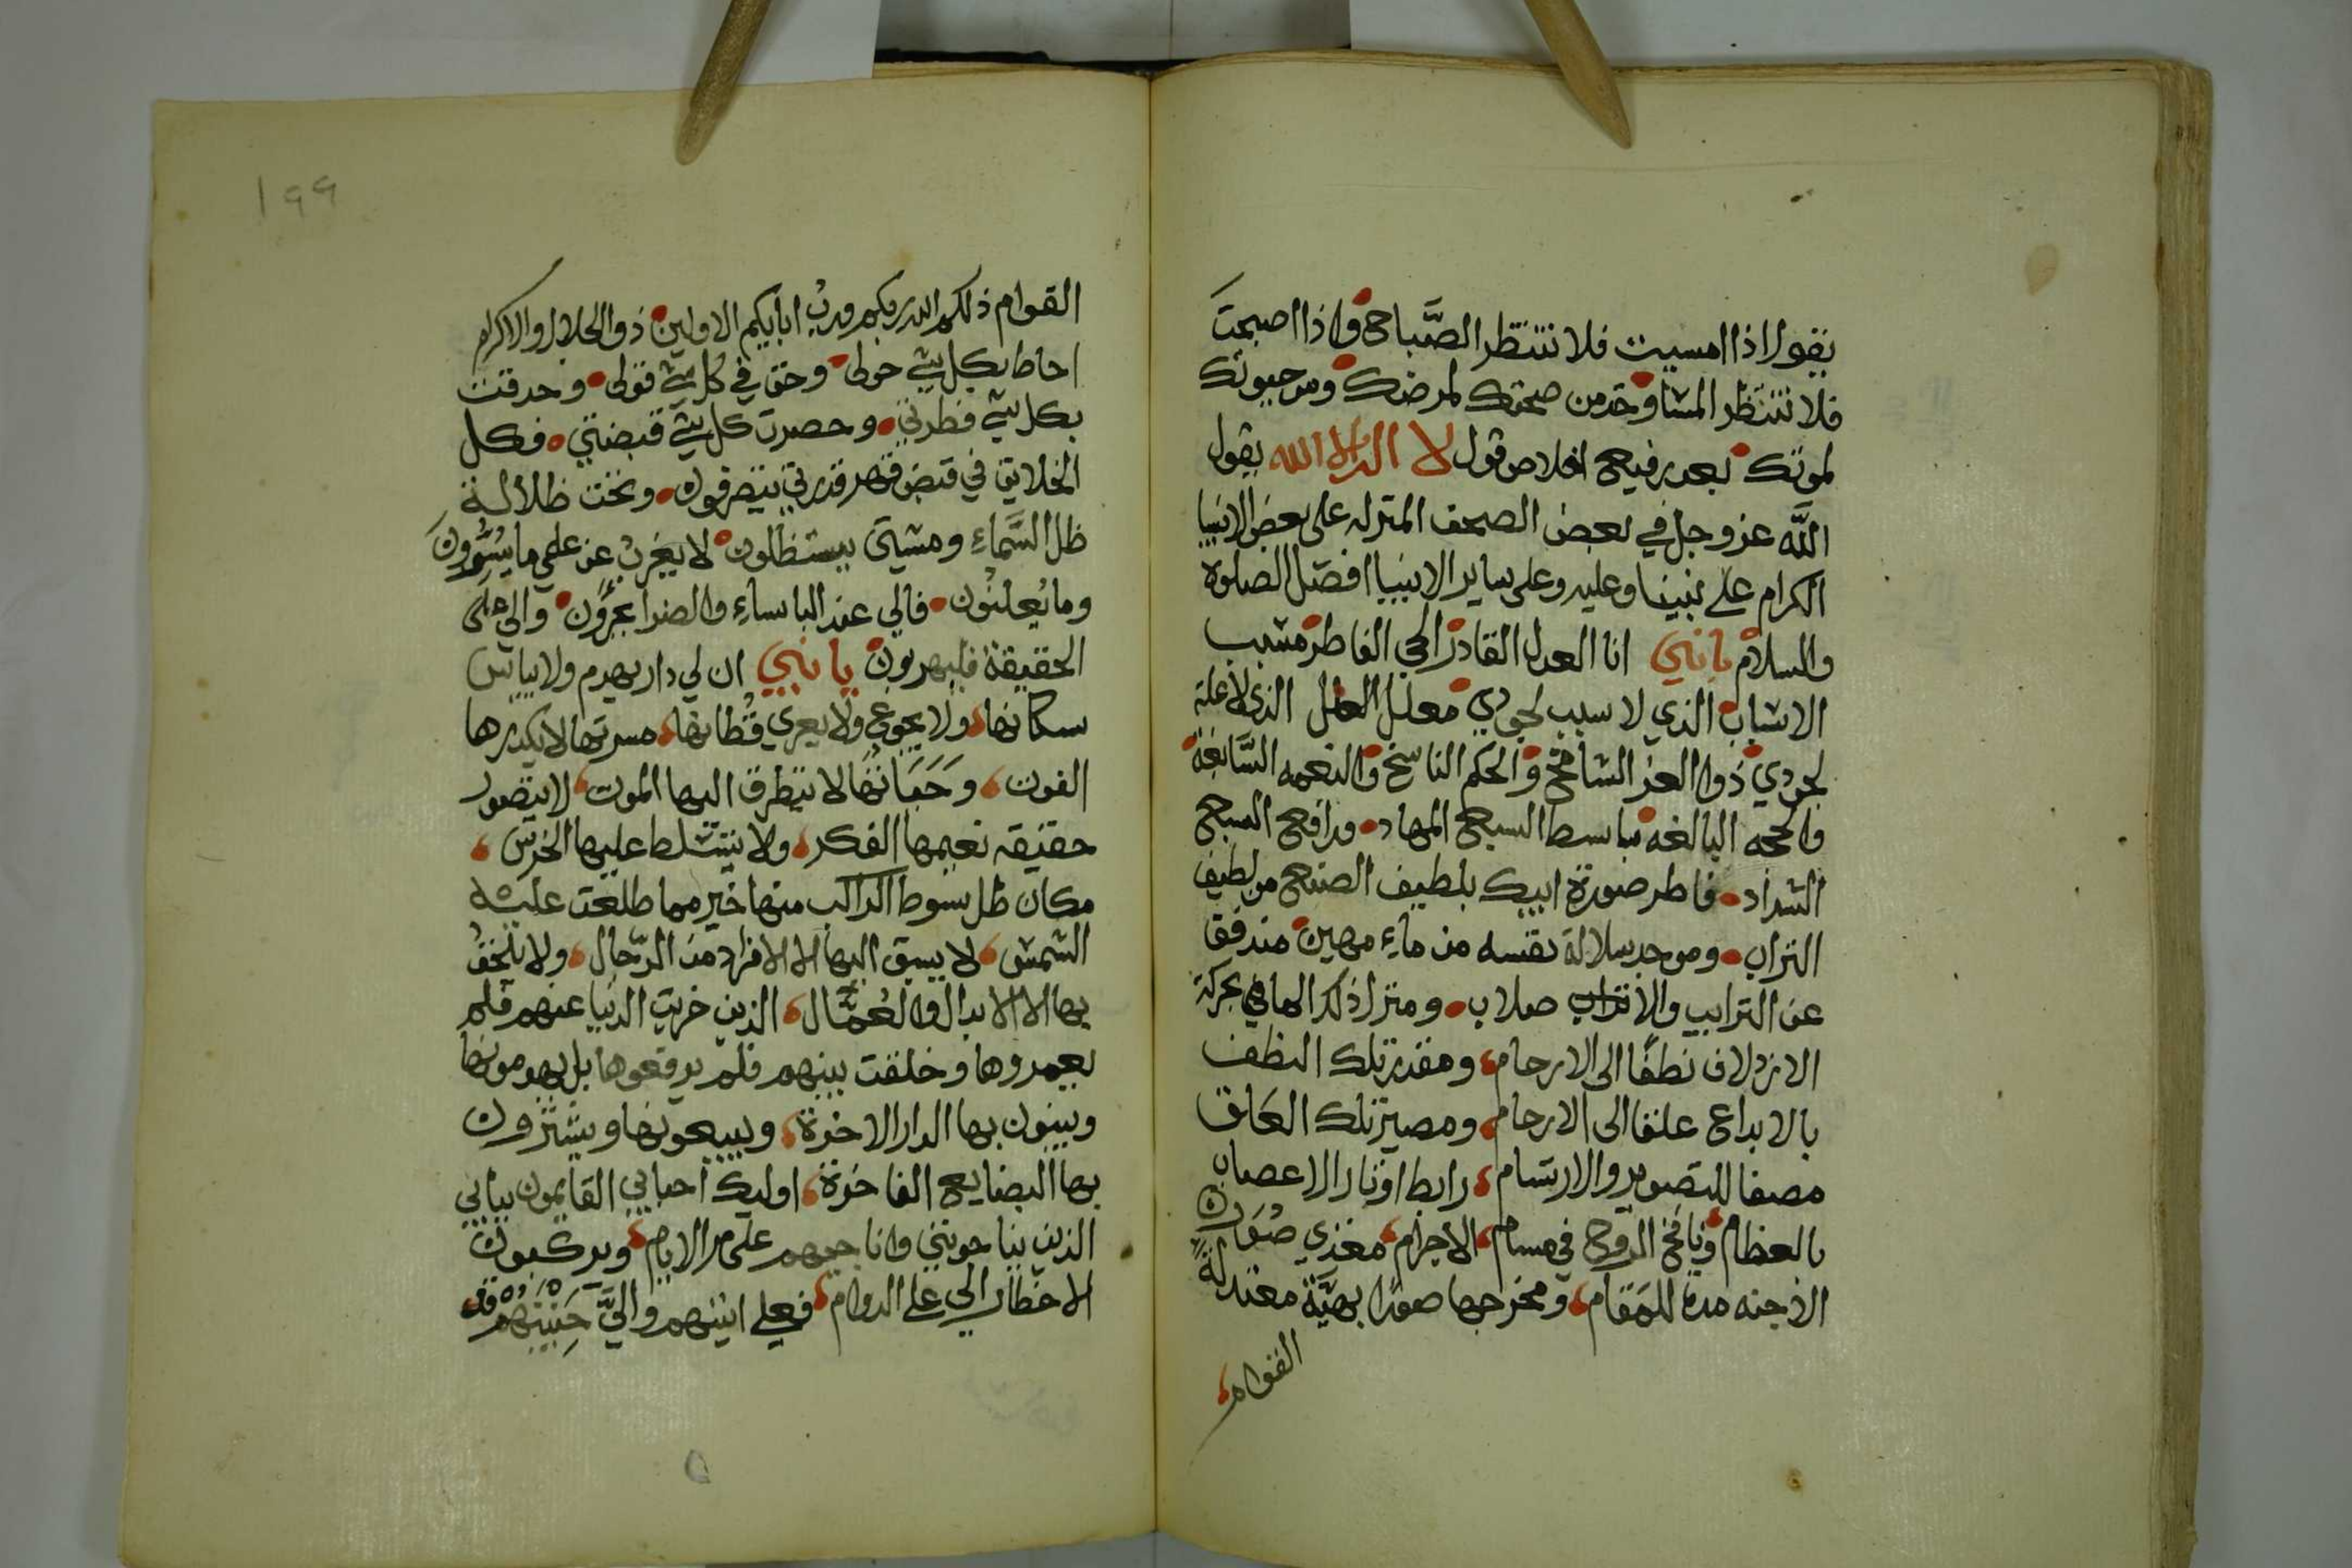 يقول اذا امسيت فلا تنتظر الصَّباح واذا اصبحتَ
فلا تنتظر المسا وخذ من صحتك لمرضك ومن حيوتك
لموتك بعد رفيع اخلاص قول لا اله الا الله يقول
اللَّه عز وجل في بعض الصحف المنزله على بعض الانبيا
الكرام على نبينا وعليه وعلى ساير الانبيا افضل الصلوة
والسلام يا نبي انا العدل القادر الحي الفاطر مسبب
الاسباب الذي لا سبب لجودي معلل العلل الذي لا علة
لجودي ذوا العز الشامخ والحكم الناسخ والنعمه السَّابغة
والحجه البالغه باسط السبع المهاد ورافع السبع
الشداد فاطر صورة ابيك بلطيف الصنع من لطيف
التراب وموجد سلالة نفسه من ماءِ مهين مندفقا
عن الترايب والاتراب صلاب ومنزل ذلك الما في بحركة
الازدلاف نطفًا الى الارحام ومقدر تلك النطف
بالابداع علقا الى الارحام ومصير تلك العَلق
مضغا للتصوير والارتسام رابط اوتار الاعصاب
بالعظام ونافخ الروح في مسام الاجرام مغذي صُوَرن
الاجنه مدة للمَقام ومخرجها صورًا بهيَّة معتدلةً
القوام
١٩٩
القوام ذلكم الله ربكم وربُ ابايكم الاولين ذو الجلال والاكرام
احاط بكل شي حولي وحق في كُل شي قولي وحدقت
بكل شي فطرتي وحصرت كل شي قبضتي فكل
الخلايق في قبض قهر قدرتي يتصرفون وتحت ظلالة
ظل السَّماءِ ومشيتى يستظلون لا يعزبُ عن علمي ما يُسِّرونَ
وما يُعلنُون فالي عند الباساءِ والضرا يجرؤن والي على
الحقيقة فليهربون يا نبي ان لي دار يهدم ولا يياس
سكانها ولا يجوع ولا يعري قُطانها مسرتها لا يكدرها
الفوت وحَيَاتُها لا يتطرق اليها الموت لا يتصور
حقيقه نعيمها الفكر ولا يتسلط عليها الخرس
مكان ظل سوط الراكب منها خير مما طلعت عليه
الشمس لا يسبق اليها الا الافراد من الرّجال ولا يلحقُ
بها الا الابدال والعُمَّال الذين خربت الدنيا عنهم فلم
يعمروها وخلقت بينهم فلم يرقعوها بل يهدمونها
ويبنون بها الدار الاخرة ويبيعونها ويشترون
بها البضايع الفاخرة اوليك احبابي القايمون ببابي
الذين يناجونني واناجيهم على مر الايام ويركبون
الاخطار الي على الدوام فعلي انينهم واليَّ حَنِينُهُمْ قد